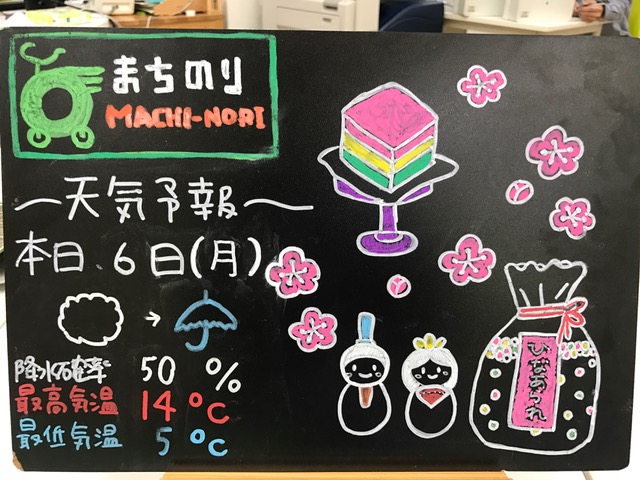 まちのり
MACHI-NORI
〜天気予報〜
本日、6日(月)
→
降水確率 50 %
最高気温 14℃
最低気温 5℃
ひなあられ